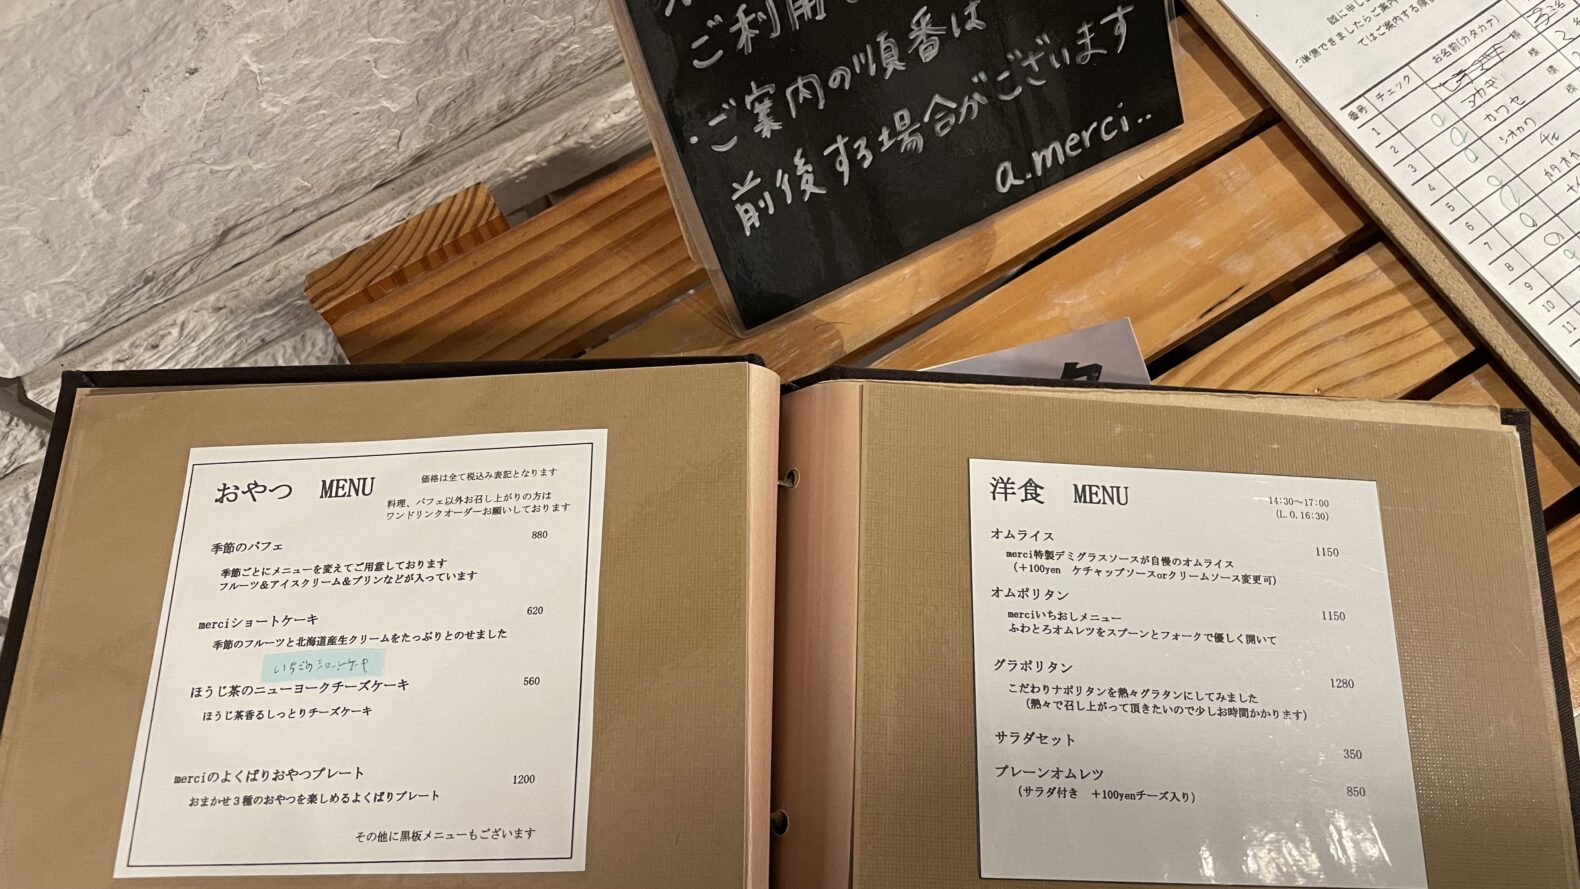 ご利用
・ご案内の順番は
前後する場合がございます
a.merci..
準備できましたらご案内
てはご案内する順
番号 チェック お名前(カタカナ)
1
2 カワセ 様
3 シオカワ 様
4
5
6
7
8
9
10
11
おやつ MENU
価格は全て税込み表記となります
料理、パフェ以外お召し上がりの方は
ワンドリンクオーダーお願いしております
季節のパフェ 880
季節ごとにメニューを変えてご用意しております
フルーツ＆アイスクリーム＆プリンなどが入っています
merciショートケーキ 620
季節のフルーツと北海道産生クリームをたっぷりとのせました
いちごのショートケーキ
ほうじ茶のニューヨークチーズケーキ 560
ほうじ茶香るしっとりチーズケーキ
merciのよくばりおやつプレート 1200
おまかせ３種のおやつを楽しめるよくばりプレート
その他に黒板メニューもございます
洋食 MENU
14:30～17:00
(L.O.16:30)
オムライス 1150
merci特製デミグラスソースが自慢のオムライス
（＋100yen ケチャップソースorクリームソース変更可）
オムポリタン 1150
merciいちおしメニュー
ふわとろオムレツをスプーンとフォークで優しく開いて
グラポリタン 1280
こだわりナポリタンを熱々グラタンにしてみました
（熱々で召し上がって頂きたいので少しお時間かかります）
サラダセット 350
プレーンオムレツ 850
（サラダ付き ＋100yenチーズ入り）